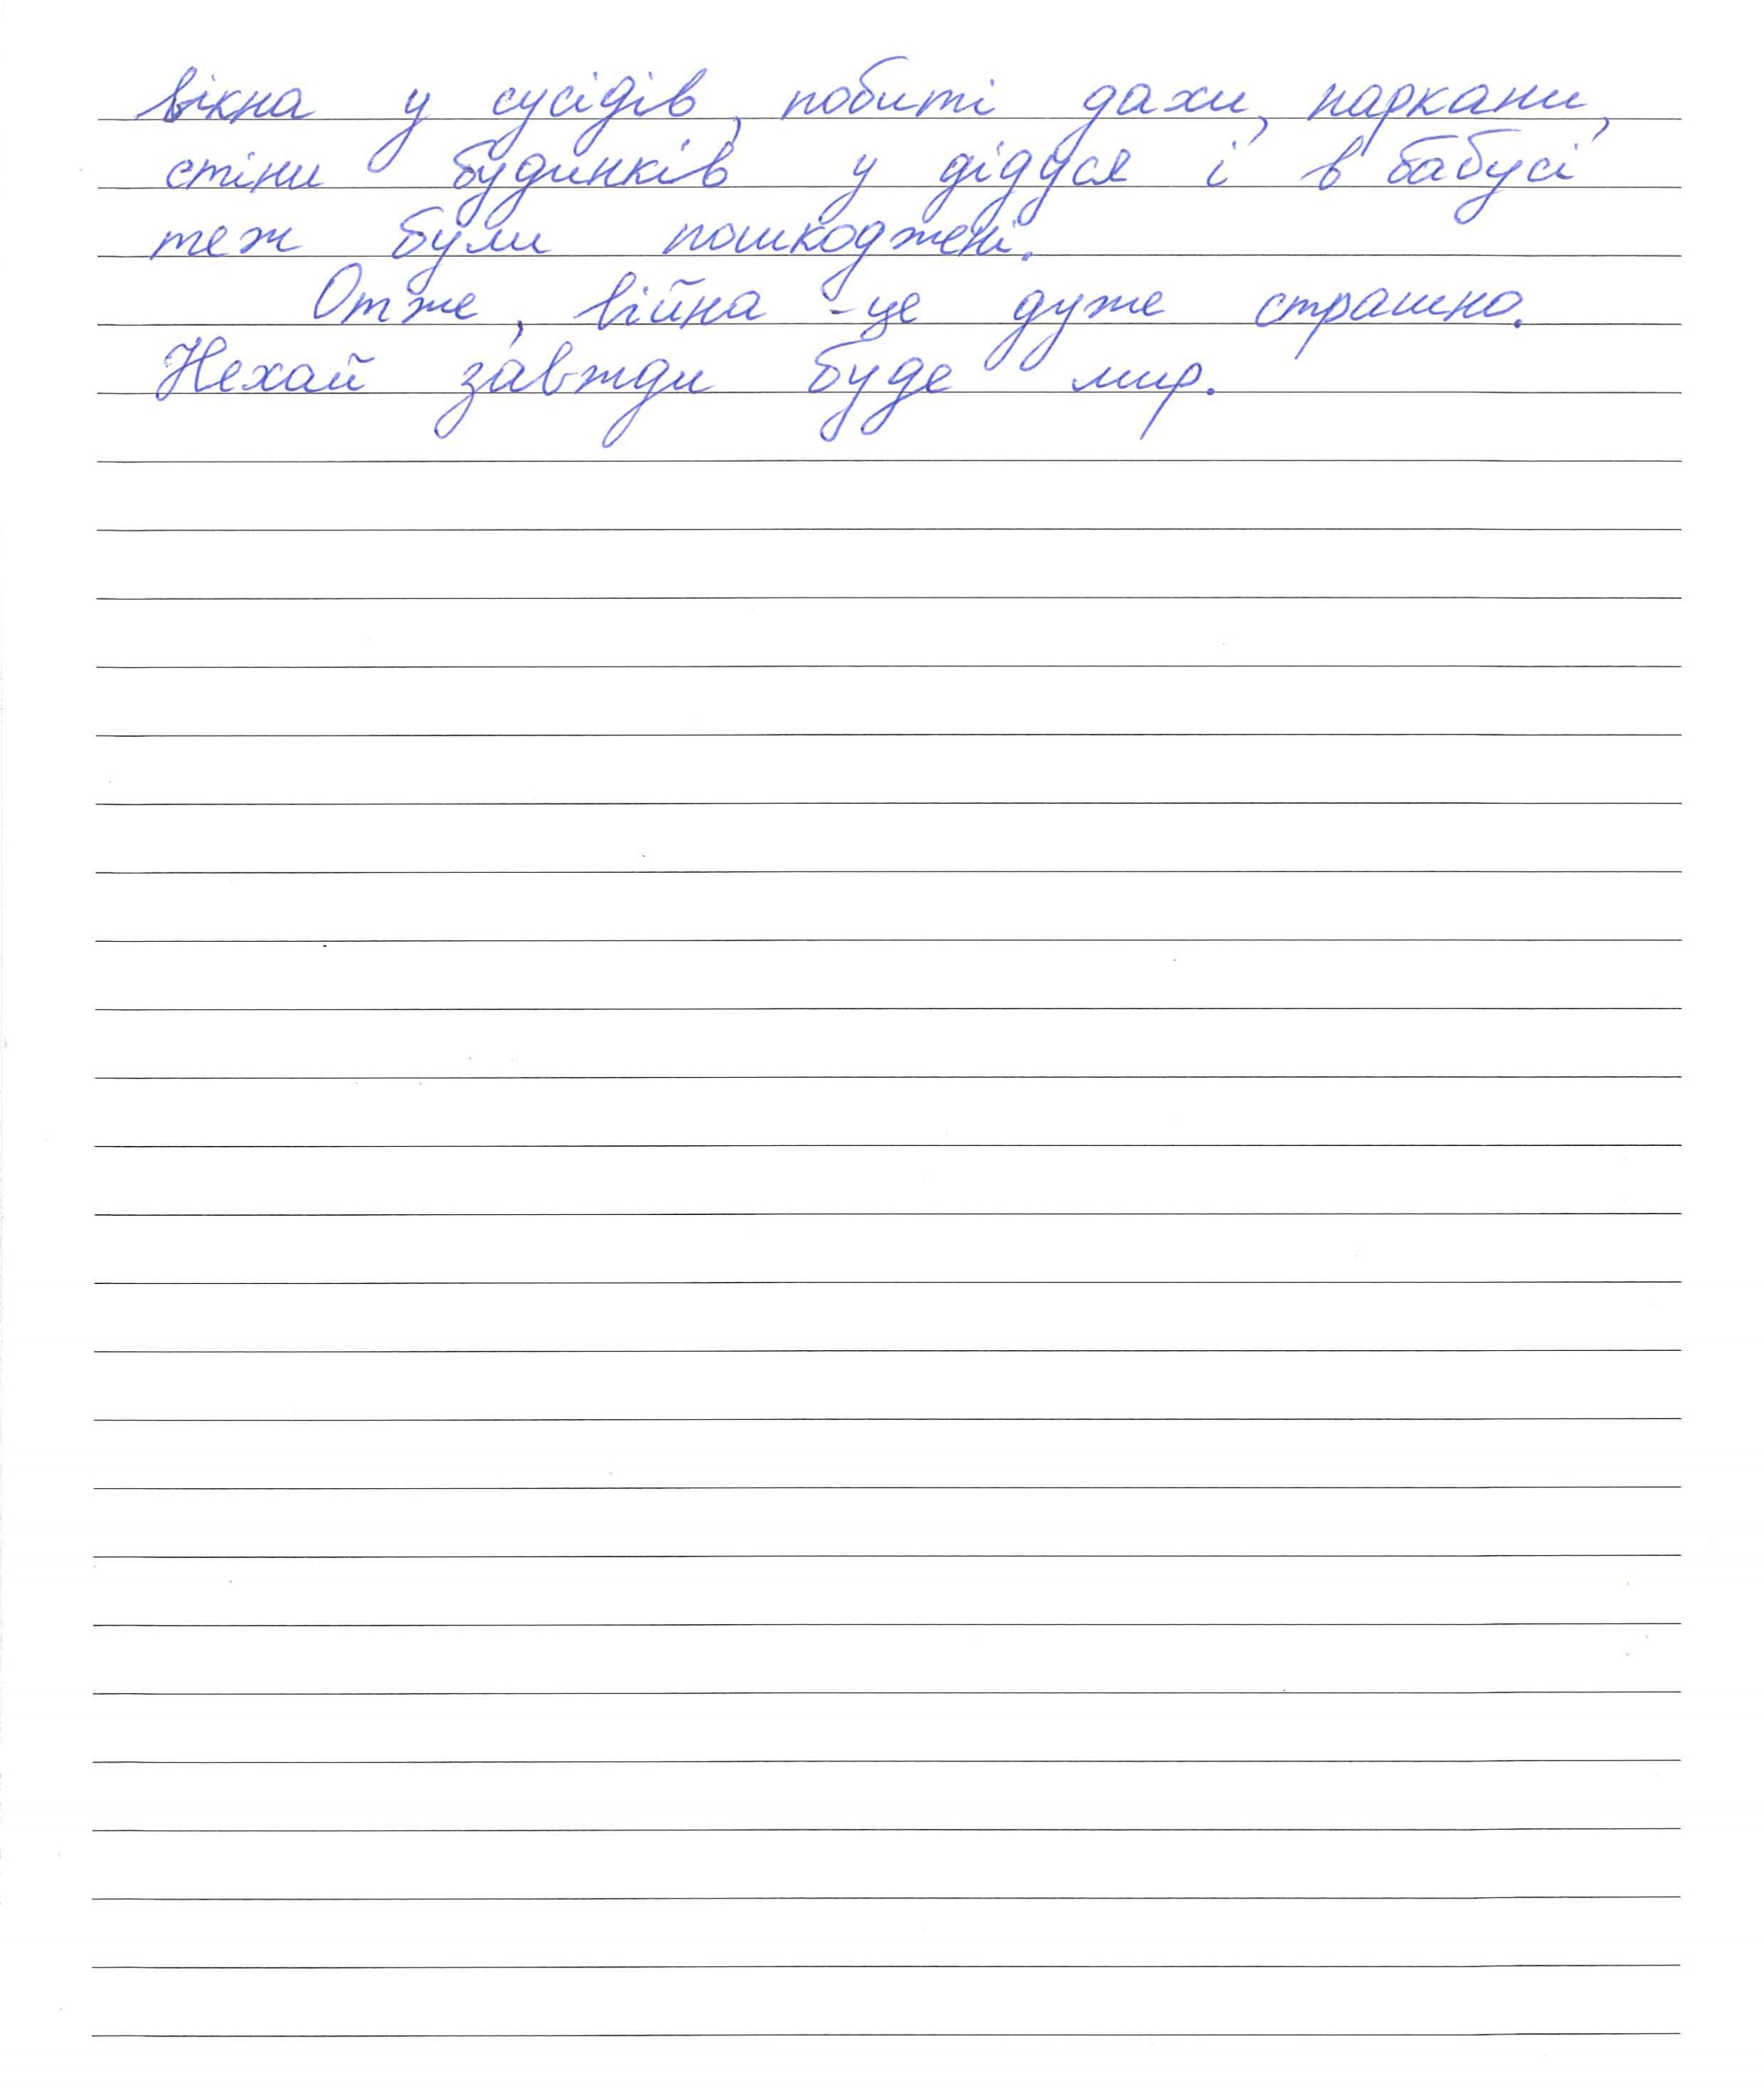 вікна у сусідів, побиті дахи, паркани,
стіни будинків у дідуся і в бабусі
теж були пошкоджені.
Отже, війна - це дуже страшно.
Нехай завжди буде мир.